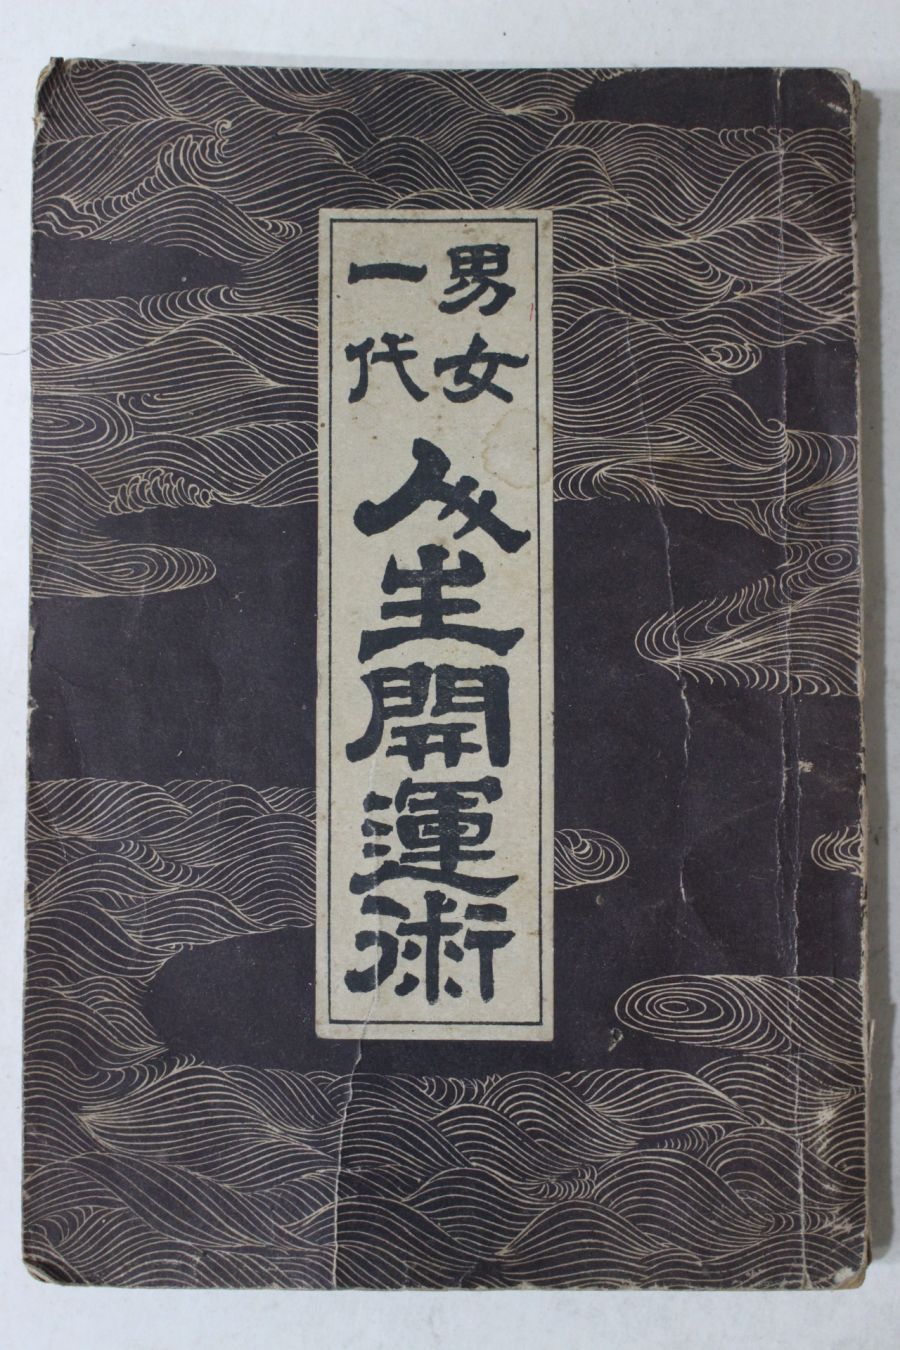 男女
一代
人生開運術